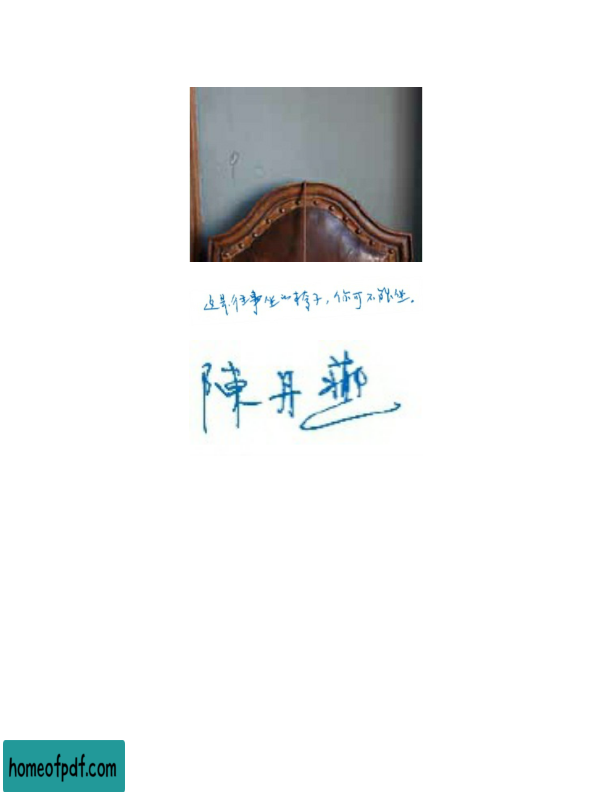 这是往事坐的椅子，你可不能坐。
陳丹燕
homeofpdf.com